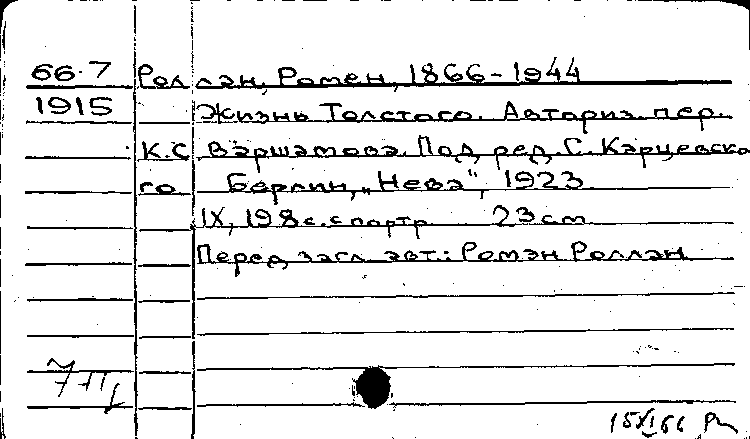 66.7 Роллан, Ромен, 1866-1944
1915 Жизнь Толстого. Авториз. пер.
К.С Варшамова. Под ред. С. Карцевско
го Берлин, „Нева", 1923
IX, 198 с. с портр 23 см
Перед загл. авт.: Ромэн Роллан